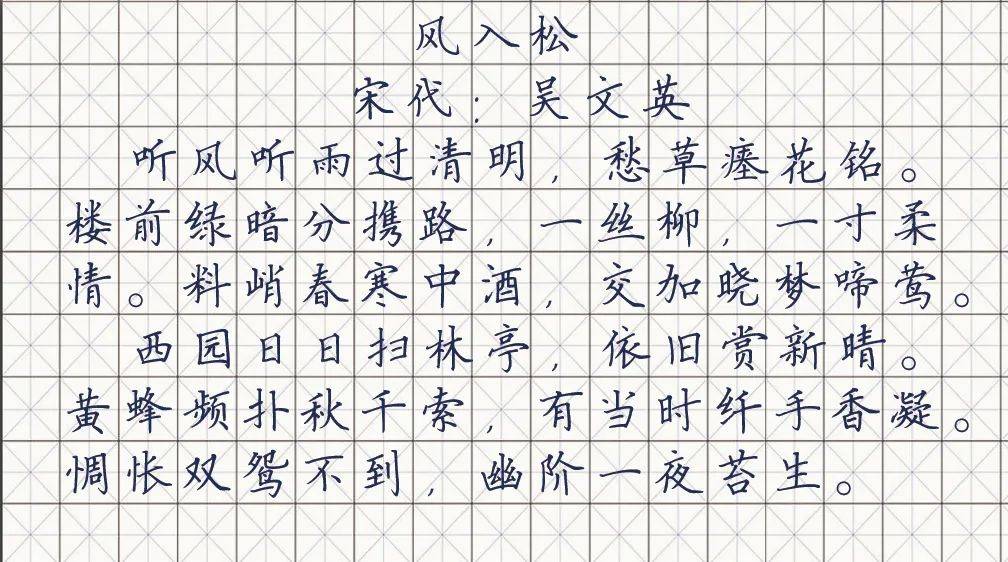 风入松
宋代：吴文英
听风听雨过清明，愁草瘗花铭。
楼前绿暗分携路，一丝柳，一寸柔
情。料峭春寒中酒，交加晓梦啼莺。
西园日日扫林亭，依旧赏新晴。
黄蜂频扑秋千索，有当时纤手香凝。
惆怅双鸳不到，幽阶一夜苔生。